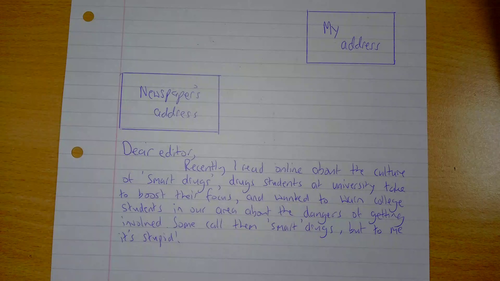 My
address
Newspaper's
address
Dear editor,
Recently I read online about the culture
of 'Smart drugs', drugs students at university take
to boost their focus, and wanted to warn college
students in our area about the dangers of getting
involved. Some call them 'smart' drugs, but to me
it's stupid!